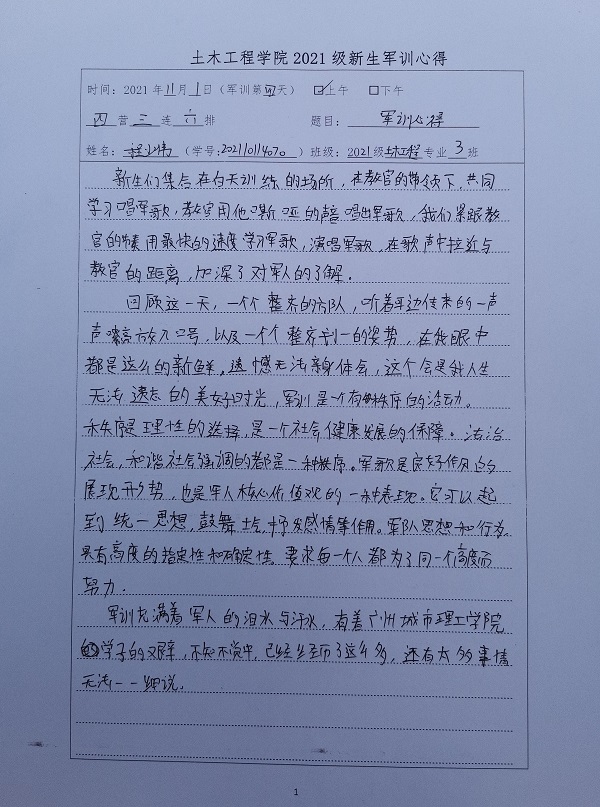 土木工程学院 2021 级新生军训心得
时间：2021 年11月1日（军训第四天） ☑上午 □下午
四营三连六排 题目：军训心得
姓名：程上伟（学号：202110114070）班级：2021级土木工程专业3班
新生们集合在白天训练的场所，在教官的带领下，共同
学习唱军歌，教官用他嘶哑的声音唱出军歌，我们紧跟教
官的节奏用最快的速度学习军歌，演唱军歌，在歌声中拉近与
教官的距离，加深了对军人的了解。
回顾这一天，一个个整齐的方队，听着耳边传来的一声
声嘹亮放入口号，以及一个个整齐划一的姿势，在我眼中
都是这么的新鲜，遗憾无法亲身体会，这个会是我人生
无法遗忘的美好时光，军训是一个有秩序的活动。
秩序是理性的选择，是一个社会健康发展的保障。法治
社会，和谐社会强调的都是一种秩序。军歌是良好作风的
展现形势，也是军人核心价值观的一种表现。它可以起
到统一思想，鼓舞士气，抒发感情等作用。军队思想和行为
具有高度的指定性和确定性，要求每一个人都为了同一个高度而
努力.
军训充满着军人的泪水与汗水，有着广州城市理工学院
学子的艰辛，不知不觉中，已经经历了这么多，还有太多事情
无法一一细说。
1